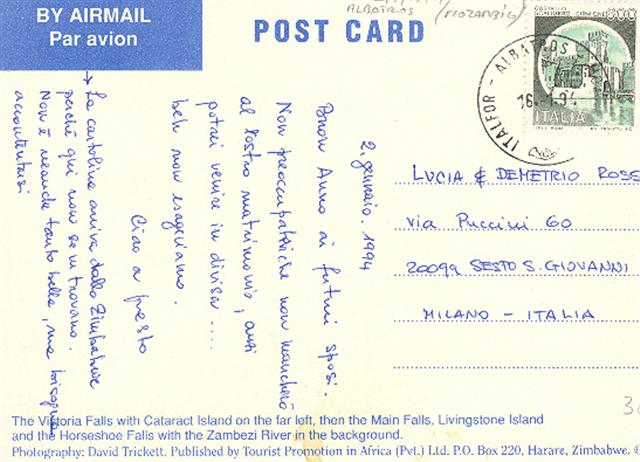 BY AIRMAIL
Par avion
POST CARD
ALBATROS (MOZAMBICO)
CASTELLO
500
ITALIA
ITALFOR - ALBATROS
2 gennaio. 1994
Buon Anno ai futuri sposi.
Non preoccupatevi che non mancherò
al vostro matrimonio, anzi
potrei venire in divisa ....
beh non esageriamo.
Ciao a presto
→ La cartolina arriva dallo Zimbabwe
perché qui non se ne trovano.
Non è neanche tanto bella, ma bisogna
accontentarsi
LUCIA & DEMETRIO ROSS
via Puccini 60
20099 SESTO S. GIOVANNI
MILANO - ITALIA
The Victoria Falls with Cataract Island on the far left, then the Main Falls, Livingstone Island
and the Horseshoe Falls with the Zambezi River in the background.
Photography: David Trickett. Published by Tourist Promotion in Africa (Pvt.) Ltd. P.O. Box 220, Harare, Zimbabwe. ©